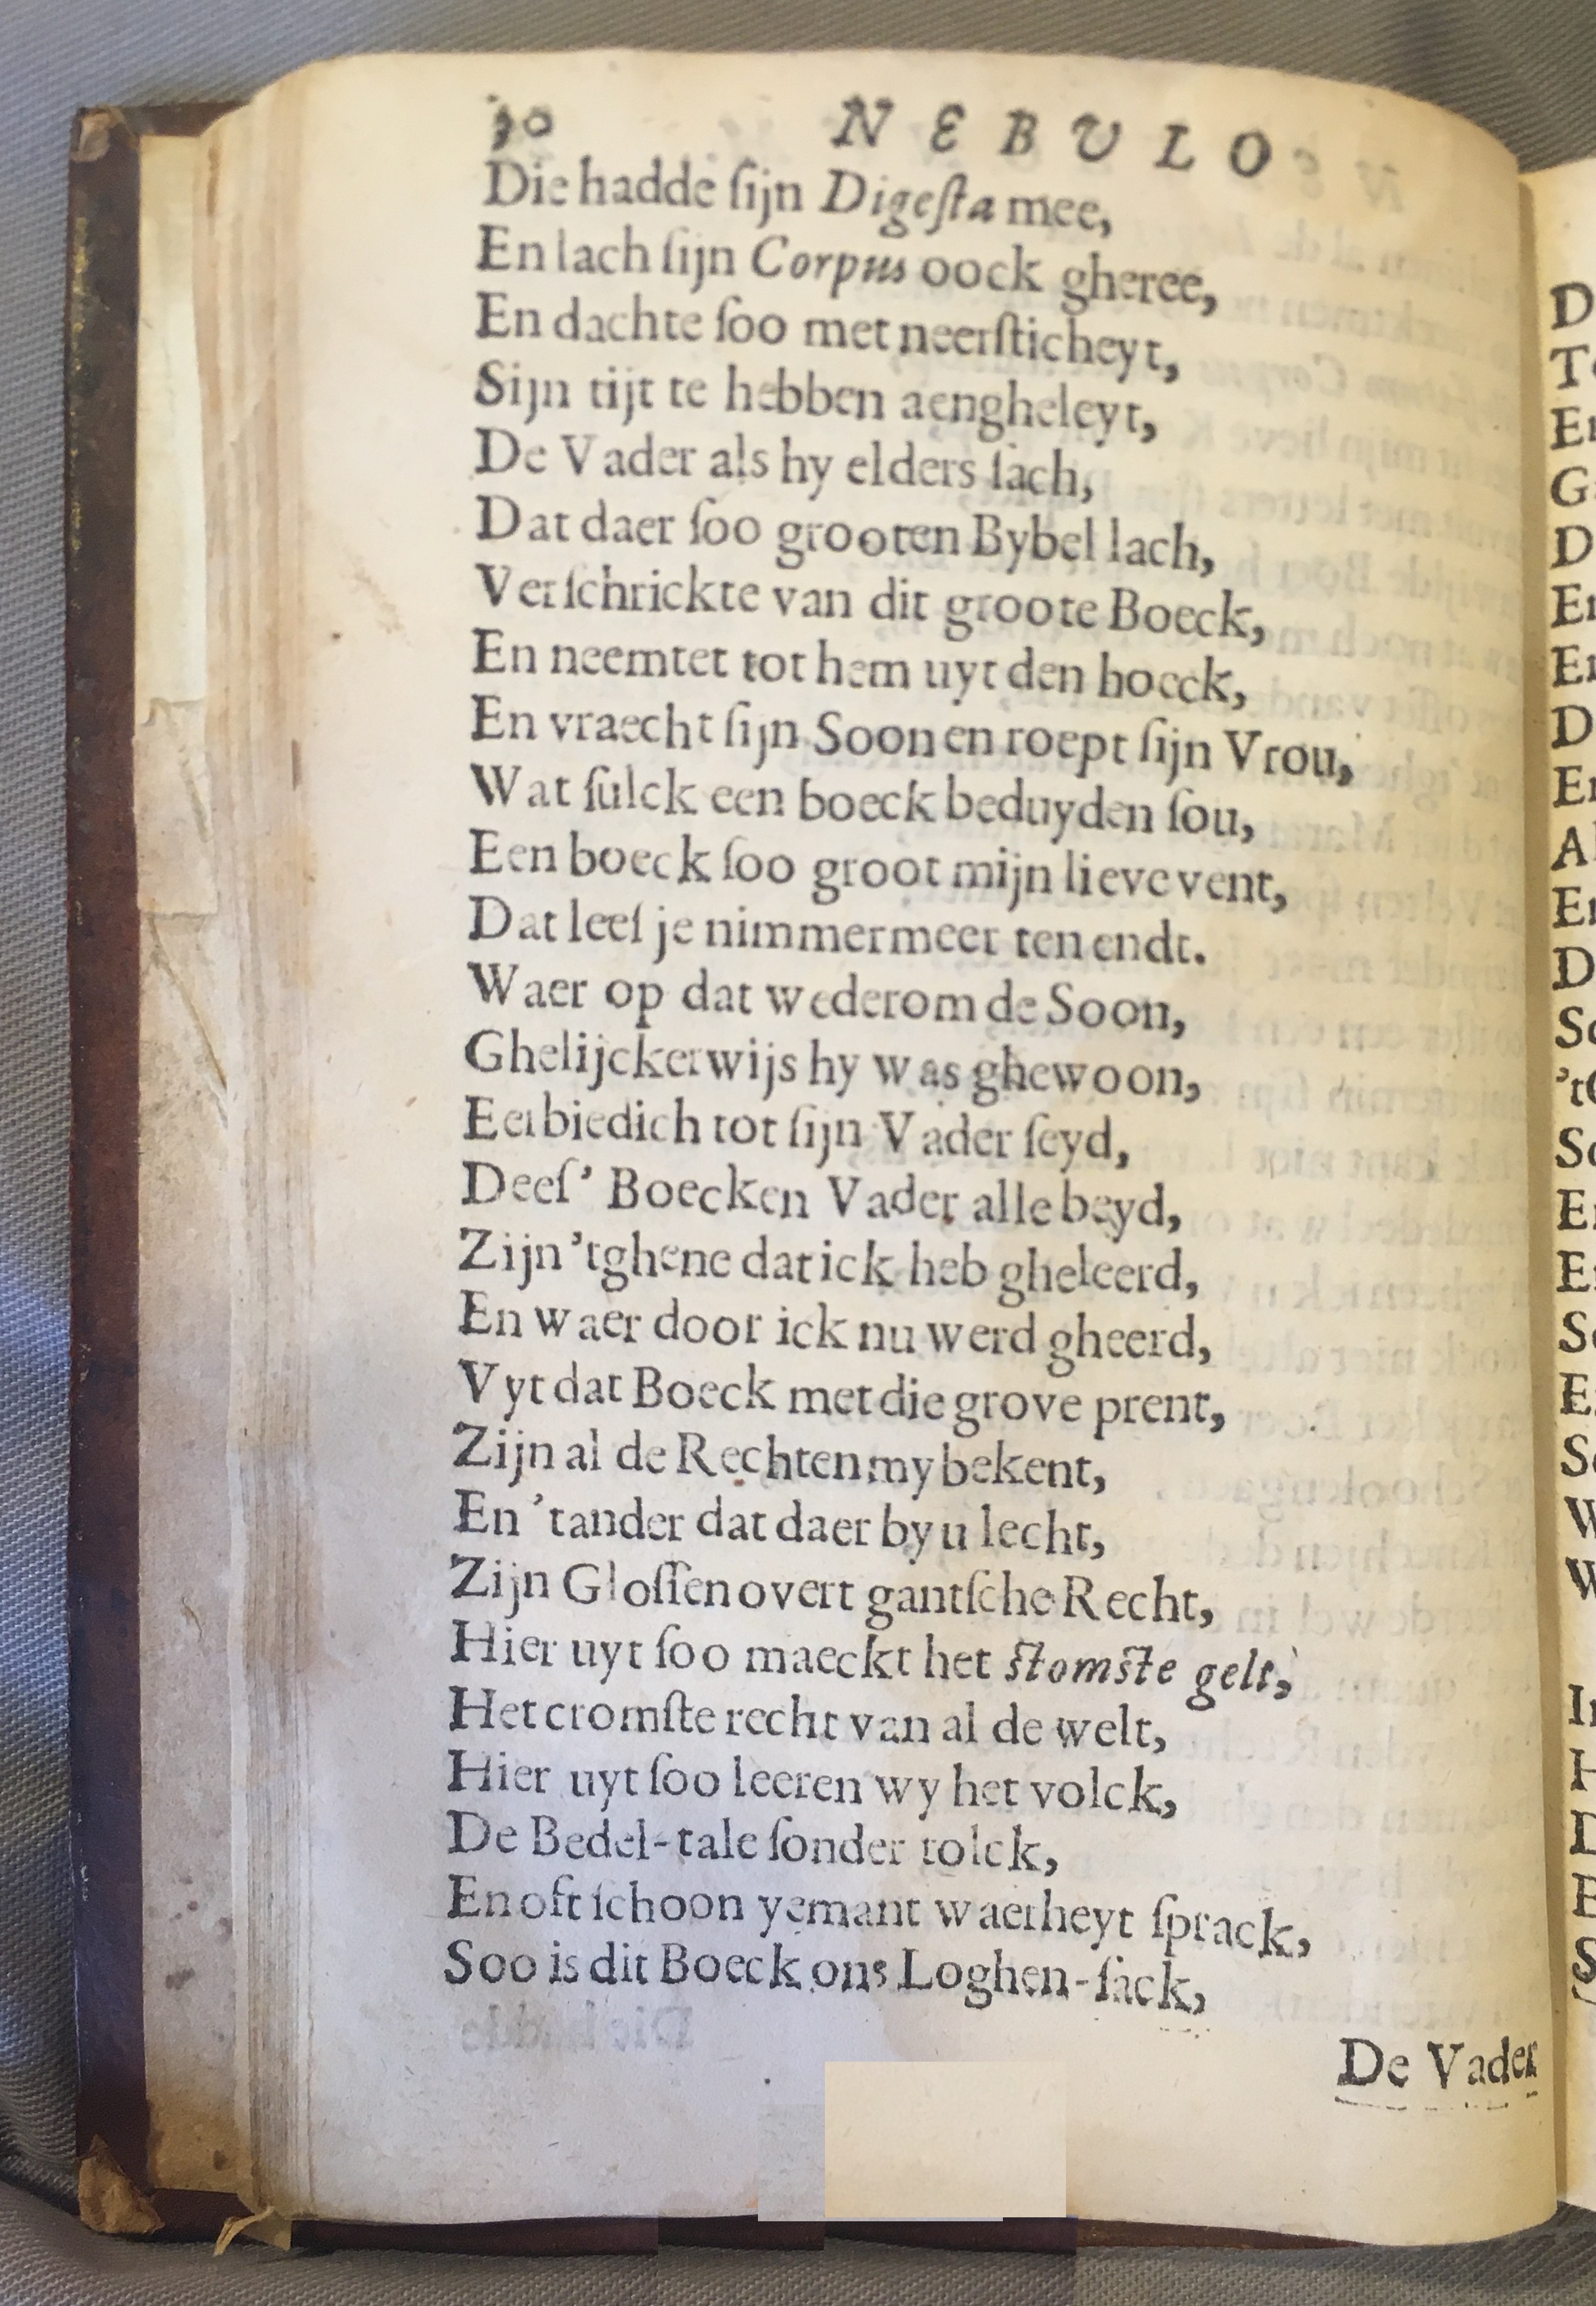 30 NEBULO
Die hadde ſijn Digeſta mee,
En lach ſijn Corpus oock gheree,
En dachte ſoo met neerſticheyt,
Sijn tijt te hebben aengheleyt,
De Vader als hy elders ſach,
Dat daer ſoo grooten Bybel lach,
Verſchrickte van dit groote Boeck,
En neemtet tot hem uyt den hoeck,
En vraecht ſijn Soon en roept ſijn Vrou,
Wat ſulck een boeck beduyden ſou,
Een boeck ſoo groot mijn lieve vent,
Dat leeſ je nimmermeer ten endt.
Waer op dat wederom de Soon,
Ghelijckerwijs hy was ghewoon,
Eerbiedich tot ſijn Vader ſeyd,
Deeſ' Boecken Vader alle beyd,
Zijn 'tghene dat ick heb gheleerd,
En waer door ick nu werd gheerd,
Vyt dat Boeck met die grove prent,
Zijn al de Rechten my bekent,
En 'tander dat daer by u lecht,
Zijn Gloſſen overt gantſche Recht,
Hier uyt ſoo maeckt het ſtomſte gelt,
Het cromſte recht van al de welt,
Hier uyt ſoo leeren wy het volck,
De Bedel-tale ſonder tolck,
En oft ſchoon yemant waerheyt ſprack,
Soo is dit Boeck ons Loghen-ſack,
De Vader